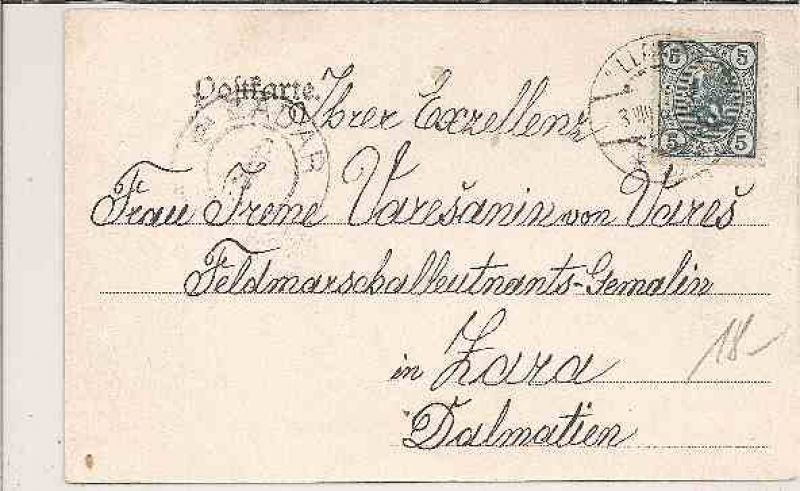 Postkarte.
Ihrer Exzellenz
Frau Irene Varešanin von Vareš
Feldmarschalleutnants-Gemalin
in Zara
Dalmatien
18-
5 5
5 5
ZADAR